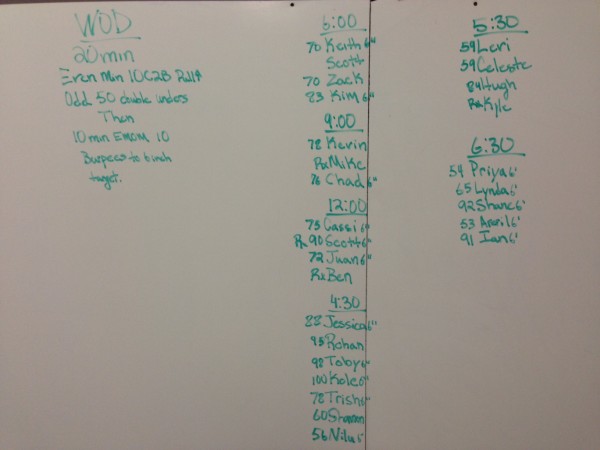 WOD
20 min
Even Min 10 C2B Pull↑
Odd 50 double unders
Then
10 min EMOM 10
Burpees to 6 inch
target.
6:00
70 Keith 6"
Scott
70 Zack
83 Kim 6"
9:00
78 Kevin
Rx Mike
76 Chad 6"
12:00
75 Cassi 6"
Rx 90 Scott 6"
72 Juan 6"
Rx Ben
4:30
88 Jessica 6"
95 Rohan
98 Toby 6"
100 Kole 6"
78 Trish 6"
60 Shannon
56 Nilu 6"
5:30
59 Lori
59 Celeste
84 Hugh
Rx Kyle
6:30
54 Priya 6"
65 Lynda 6"
92 Shane 6"
53 April 6"
91 Ian 6"